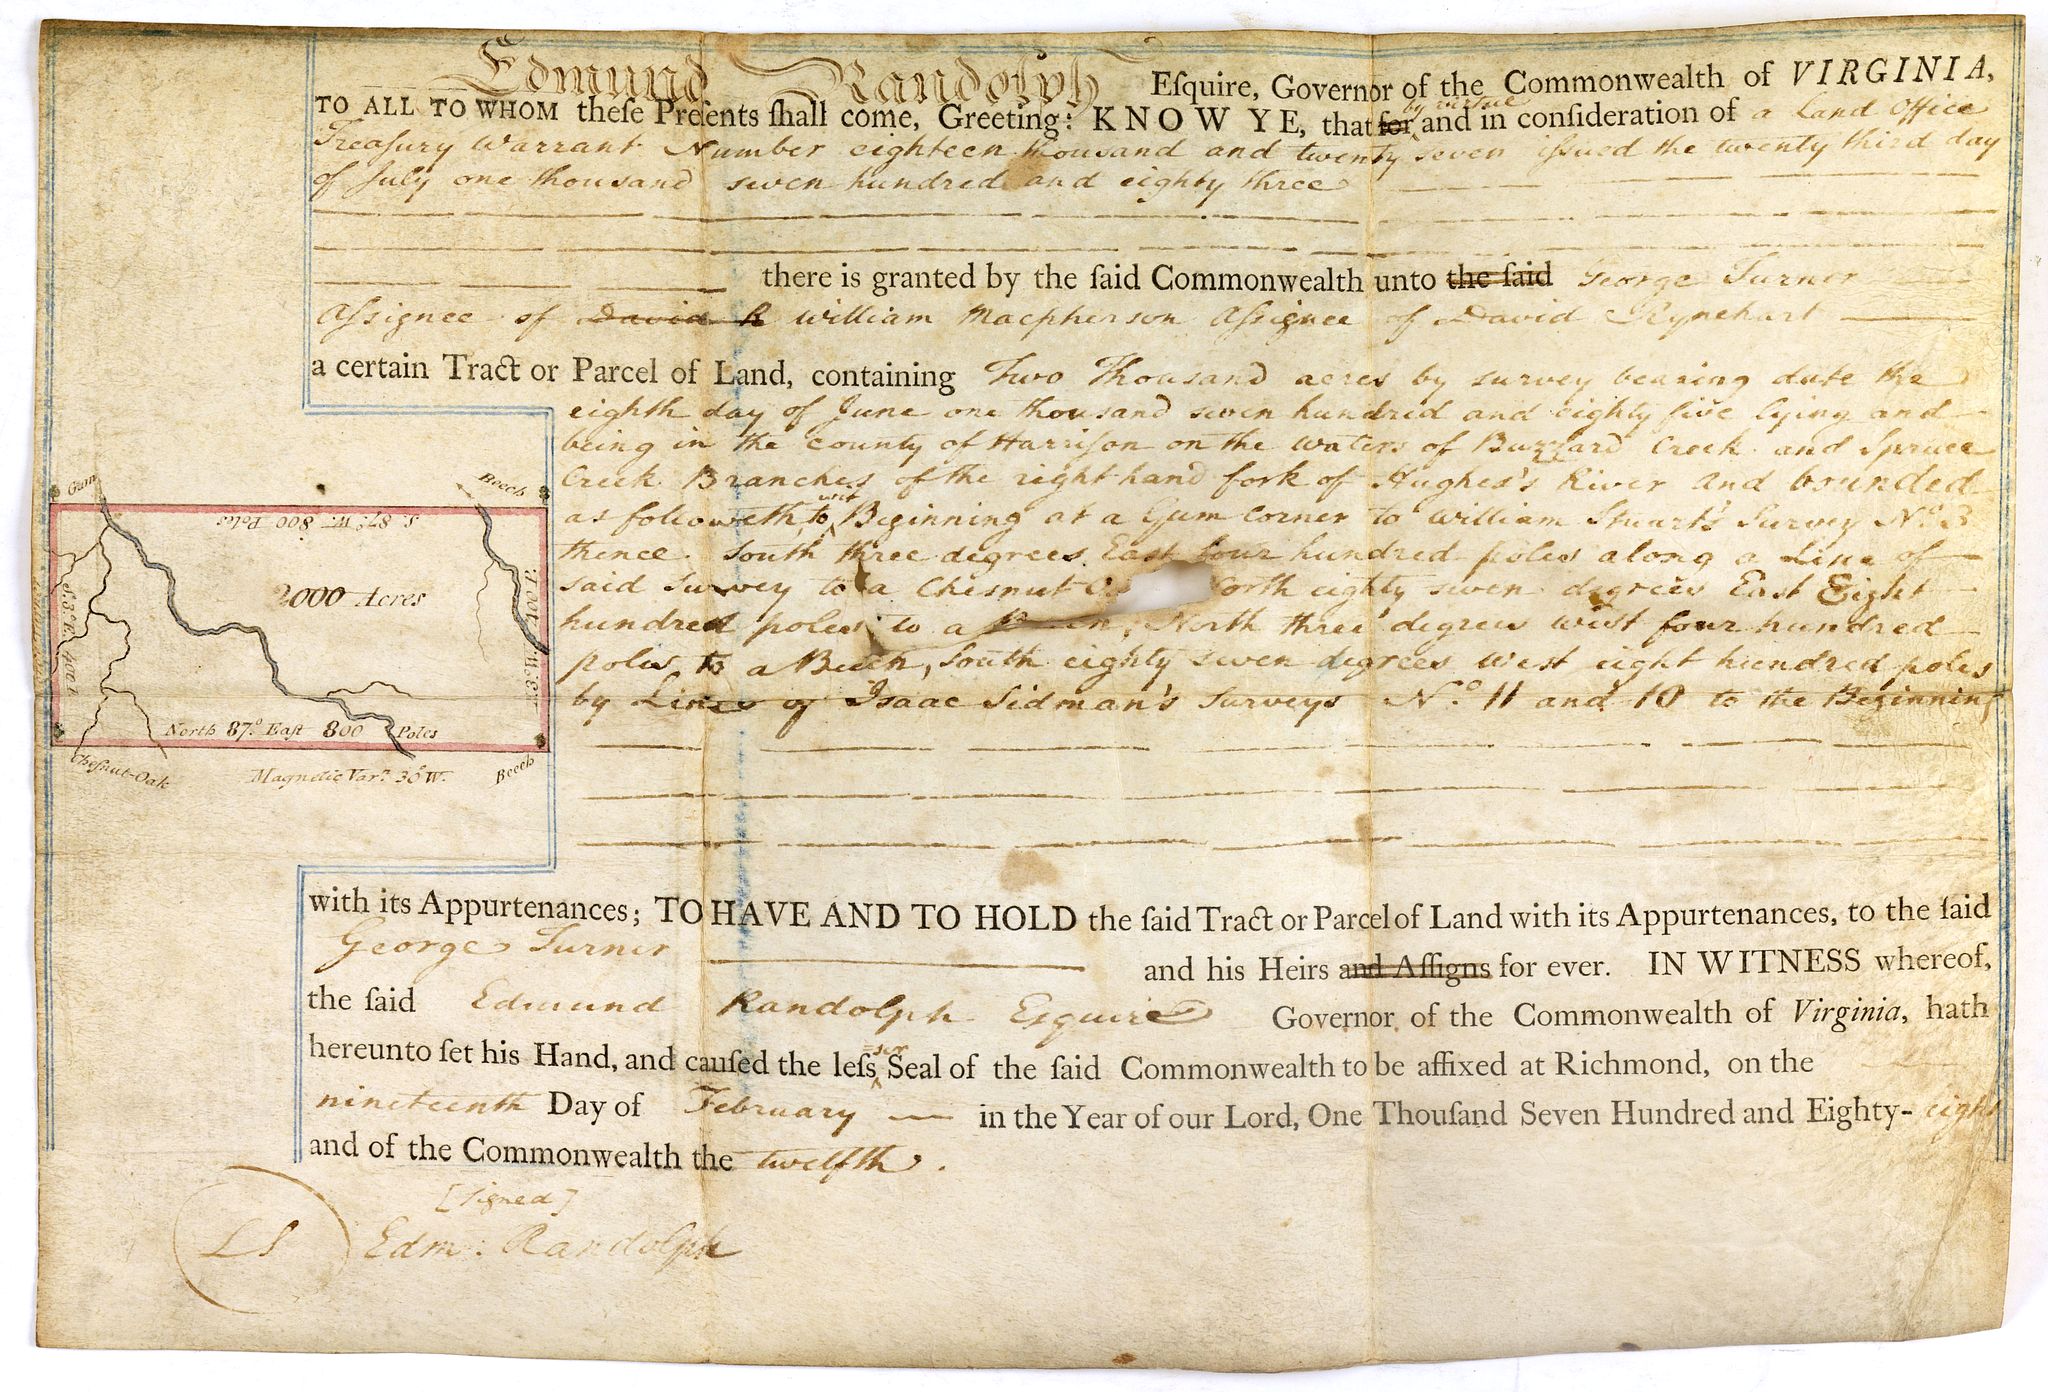 Edmund Randolph Eſquire, Governor of the Commonwealth of VIRGINIA,
TO ALL TO WHOM theſe Preſents ſhall come, Greeting: KNOW YE, that for by virtue and in conſideration of a Land Office
Treaſury Warrant Number eighteen thousand and twenty seven iſsued the twenty third day
of July one thousand seven hundred and eighty three
there is granted by the ſaid Commonwealth unto the ſaid George Turner
Aſsignee of David R William Macpherson Aſsignee of David Rynehart
a certain Tract or Parcel of Land, containing Two Thousand acres by survey bearing date the
eighth day of June one thousand seven hundred and eighty five lying and
being in the County of Harriſon on the waters of Buzzard Creek and Spruce
Creek Branches of the right hand fork of Hughes's River and bounded
as followeth, to wit Beginning at a Gum corner to William Stuart's Survey No. 3
thence South three degrees East four hundred poles along a Line of
said Survey to a Chesnut O orth eighty seven degrees East Eight
hundred poles to a North three degrees west four hundred
poles to a Beech, South eighty seven degrees west eight hundred poles
by Lines of Isaac Sidman's Surveys No. 11 and 10 to the Beginning
Gum
Beech
S. 87° W. 800 Poles
2000 Acres
S. 3° E. 400
N. 3° W. 400 P.
North 87° Eaſt 800 Poles
Cheſnut-Oak
Magnetic Varn. 30' W.
Beech
with its Appurtenances; TO HAVE AND TO HOLD the ſaid Tract or Parcel of Land with its Appurtenances, to the ſaid
George Turner and his Heirs and Aſſigns for ever. IN WITNESS whereof,
the ſaid Edmund Randolph Esquire Governor of the Commonwealth of Virginia, hath
hereunto ſet his Hand, and cauſed the leſs=ser Seal of the ſaid Commonwealth to be affixed at Richmond, on the
nineteenth Day of February in the Year of our Lord, One Thouſand Seven Hundred and Eighty-eight
and of the Commonwealth the twelfth.
[Signed]
LS Edm: Randolph